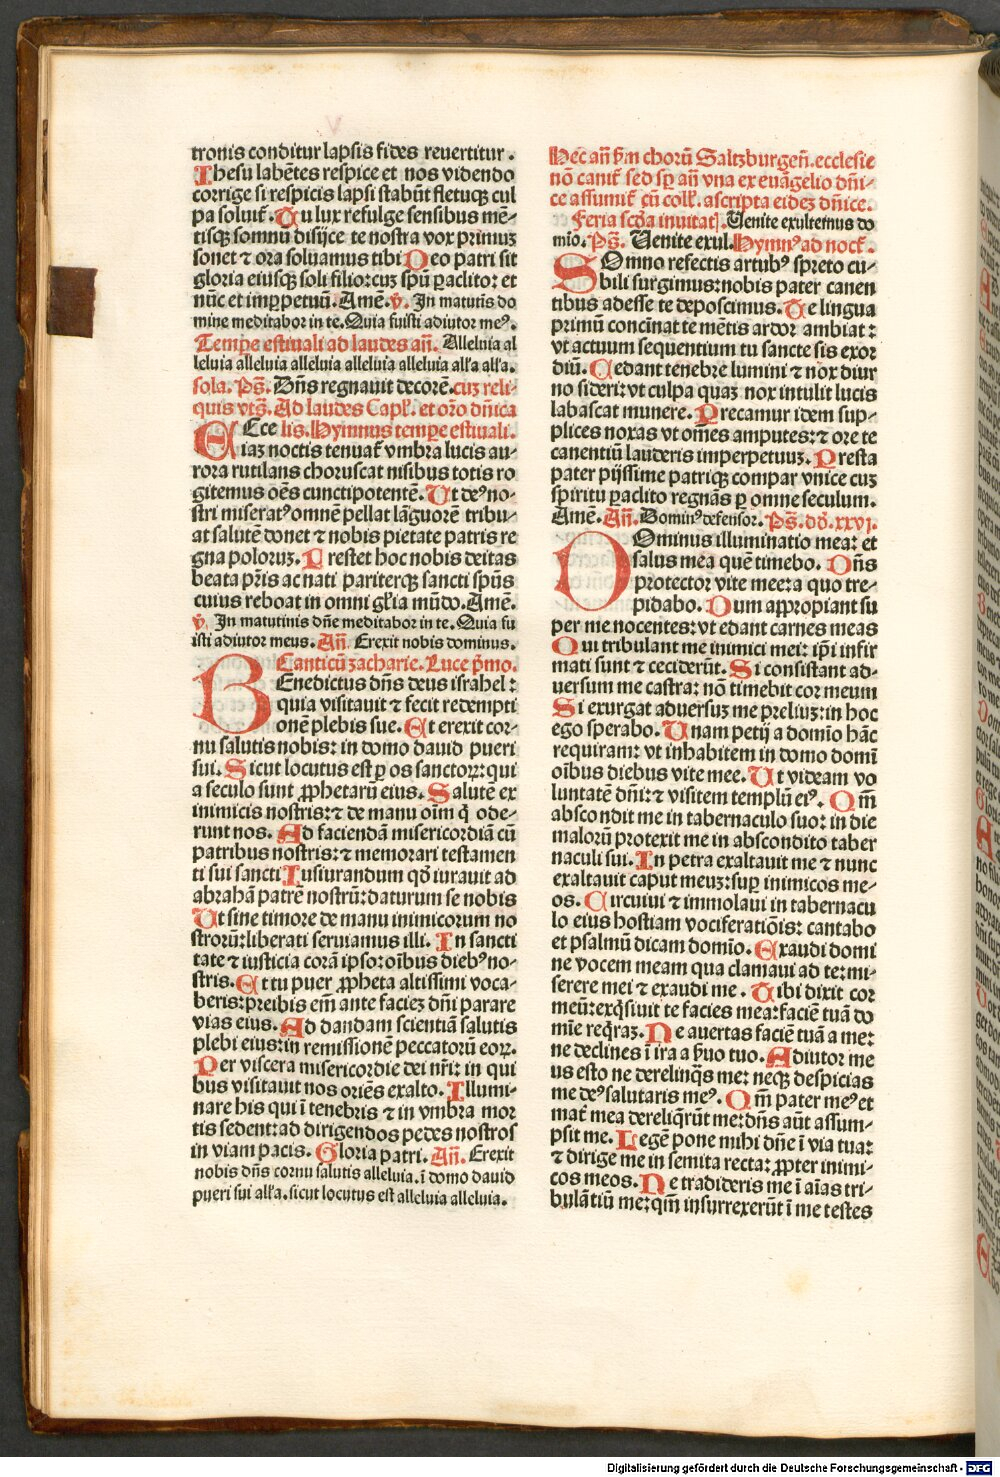 tronis conditur lapsis fides reuertitur.
Ihesu labētes respice et nos videndo
corrige si respicis lapsi stabūt fletuqꝫ cul
pa soluit᷑. Tu lux refulge sensibus mē-
tisqꝫ somnū disijce te nostra vox primuꝫ
sonet ⁊ ora soluamus tibi Deo patri sit
gloria eiusqꝫ soli filio: cuꝫ spū ꝑaclito: et
nūc et imꝑpetuū. Amē. ℣. In matutīs do
mine meditabor in te. Quia fuisti adiutor meꝰ.
Tempe estiuali ad laudes añ. Alleluia al
leluia alleluia alleluia alleluia alleluia all'a all'a.
sola. Pš. Dñs regnauit decorē. cuꝫ reli-
quis vtš. Ad laudes Capl'. et orō dñica
Ecce lis. Hymnus tempe estiuali.
iaꝫ noctis tenuat᷑ vmbra lucis au-
rora rutilans choruscat nisibus totis ro
gitemus oēs cunctipotentē. Ut deꝰ no-
stri miseratꝰ omnē pellat lāguorē tribu-
at salutē donet ⁊ nobis pietate patris re
gna poloruꝫ. Prestet hoc nobis deitas
beata pr̄is ac nati pariterqꝫ sancti spūs
cuius reboat in omni gl'ia mūdo. Amē.
℣. In matutinis dñe meditabor in te. Quia fu
isti adiutor meus. Añ. Erexit nobis dominus.
Canticū zacharie. Luce p̄mo.
BEnedictus dñs deus israhel:
quia visitauit ⁊ fecit redempti
onē plebis sue. Et erexit cor-
nu salutis nobis: in domo dauid pueri
sui. Sicut locutus est ꝑ os sanctoꝝ: qui
a seculo sunt ꝓphetarū eius. Salutē ex
inimicis nostris: ⁊ de manu oīm q̄ ode-
runt nos. Ad faciendā misericordiā cū
patribus nostris: ⁊ memorari testamen
ti sui sancti Iusiurandum qd̄ iurauit ad
abrahā patrē nostrū: daturum se nobis
Ut sine timore de manu inimicorum no
strorū: liberati seruiamus illi. In sancti
tate ⁊ iusticia corā ipso: oībus diebꝰ no-
stris. Et tu puer ꝓpheta altissimi voca-
beris: preibis em̄ ante facieꝫ dñi parare
vias eius. Ad dandam scientiā salutis
plebi eius: in remissionē peccatorū eoꝝ.
Per viscera misericordie dei nr̄i: in qui
bus visitauit nos oriēs exalto. Illumi-
nare his qui ī tenebris ⁊ in vmbra mor
tis sedent: ad dirigendos pedes nostros
in viam pacis. Gloria patri. Añ. Erexit
nobis dñs cornu salutis alleluia. ī domo dauid
pueri sui all'a. sicut locutus est alleluia alleluia.
Hec añ ẜm chorū Saltzburgeñ. ecclesie
nō canit᷑ sed sꝑ añ vna ex euāgelio dñi-
ce assumit᷑ cū coll'. ascripta eideꝫ dñice.
Feria scd̄a inuitatꝭ. Uenite exultemus do
mio. Pš. Uenite exul. Hymnꝰ ad noct᷑.
SOmno refectis artubꝰ spreto cu-
bili surgimus: nobis pater canen
tibus adesse te deposcimus. Te lingua
primū concinat te mētis ardor ambiat:
vt actuum sequentium tu sancte sis exor
diū. Cedant tenebre lumini ⁊ nox diur
no sideri: vt culpa quaꝫ nox intulit lucis
labascat munere. Precamur idem sup-
plices noxas vt om̄es amputes: ⁊ ore te
canentiū lauderis imperpetuuꝫ. Presta
pater pijssime patriqꝫ compar vnice cuꝫ
spiritu ꝑaclito regnās ꝑ omne seculum.
Amē. Añ. Dominꝰ defensor. Pš. dd̄. xxvj.
DOminus illuminatio mea: et
salus mea quē timebo. Dñs
protector vite mee: a quo tre-
pidabo. Dum appropiant su
per me nocentes: vt edant carnes meas
Qui tribulant me inimici mei: ip̄i infir
mati sunt ⁊ ceciderūt. Si consistant ad-
uersum me castra: nō timebit cor meum
Si exurgat aduersuꝫ me preliuꝫ: in hoc
ego sperabo. Unam petij a domīo hāc
requiram: vt inhabitem in domo domī
oībus diebus vite mee. Ut videam vo
luntatē dñi: ⁊ visitem templū eiꝰ. Qm̄
abscondit me in tabernaculo suo: in die
malorū protexit me in abscondito taber
naculi sui. In petra exaltauit me ⁊ nunc
exaltauit caput meuꝫ: suꝑ inimicos me-
os. Circuiui ⁊ immolaui in tabernacu
lo eius hostiam vociferatiōis: cantabo
et psalmū dicam domīo. Exaudi domi
ne vocem meam qua clamaui ad te: mi-
serere mei ⁊ exaudi me. Tibi dixit cor
meū: exq̄siuit te facies mea: faciē tuā do
mīe req̄raꝫ. Ne auertas faciē tuā a me:
ne declines ī ira a ẜuo tuo. Adiutor me
us esto ne derelinq̄s me: neqꝫ despicias
me deꝰ salutaris meꝰ. Qm̄ pater meꝰ et
mat᷑ mea dereliq̄rūt me: dñs aūt assum-
psit me. Legē pone mihi dñe ī via tua:
⁊ dirige me in semita recta: ꝓpter inimi-
cos meos. Ne tradideris me ī aīas tri-
bulātiū me: qm̄ insurrexerūt ī me testes
Digitalisierung gefördert durch die Deutsche Forschungsgemeinschaft - DFG